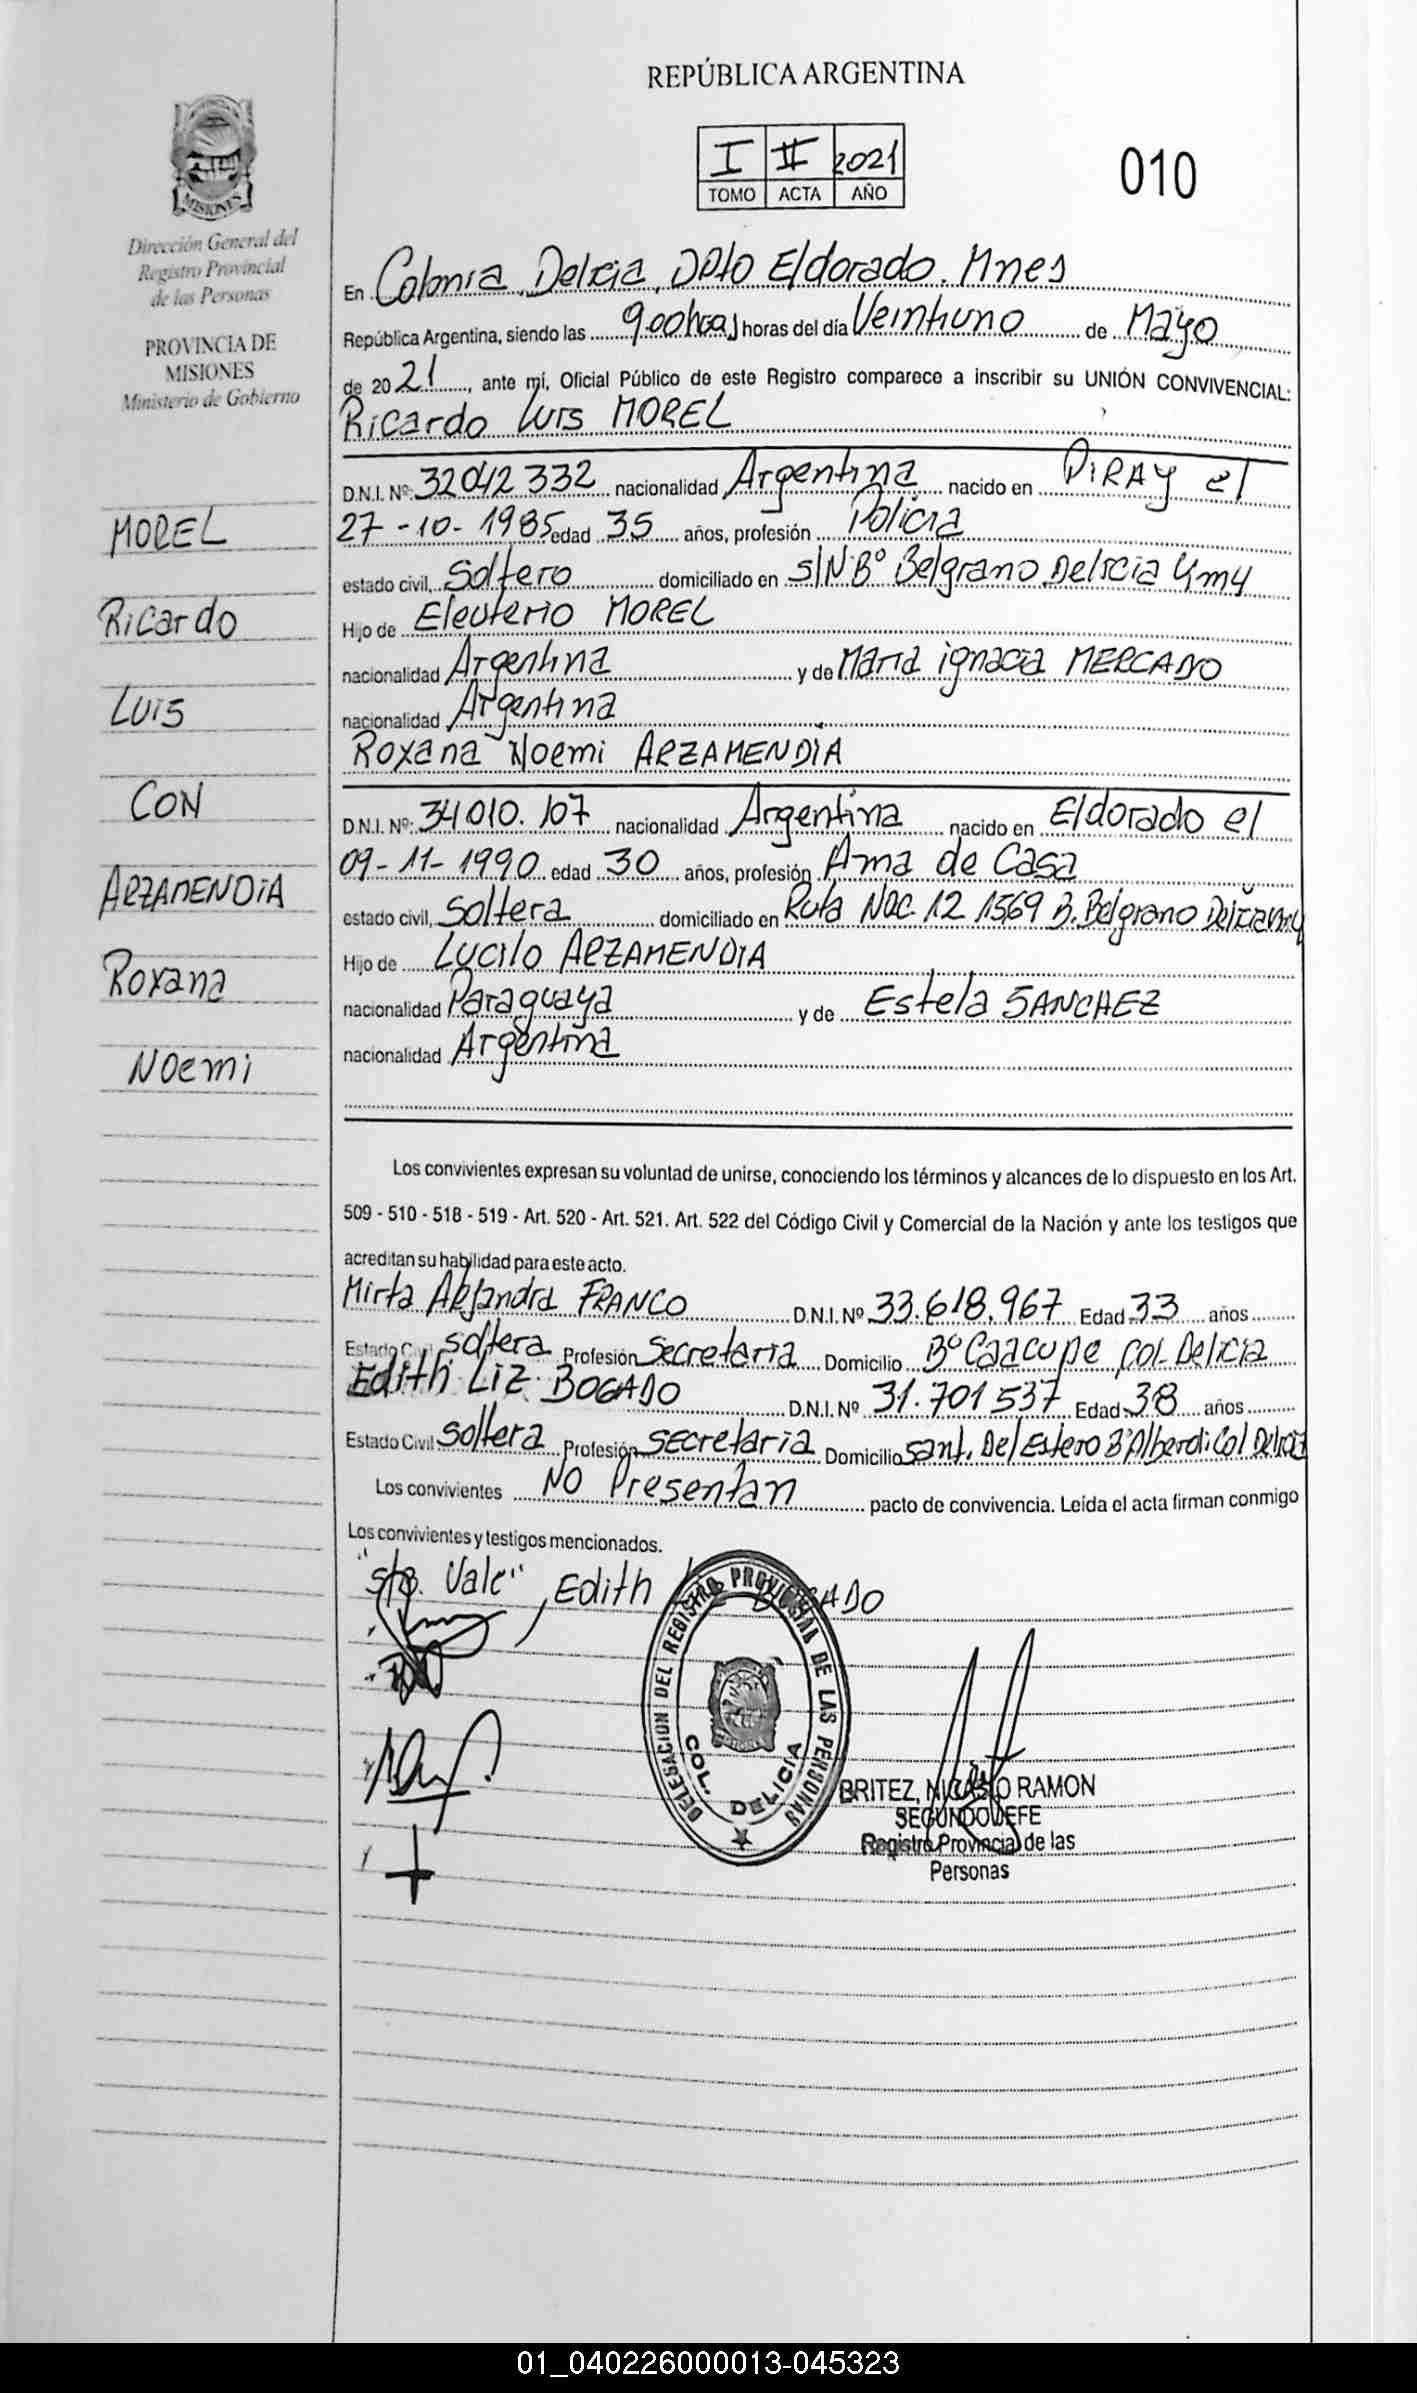 REPÚBLICA ARGENTINA
I II 2021
TOMO ACTA AÑO
010
MISIONES
Dirección General del
Registro Provincial
de las Personas
PROVINCIA DE
MISIONES
Ministerio de Gobierno
MOREL
Ricardo
Luis
CON
ARZAMENDIA
Roxana
Noemi
En Colonia Delicia, Dpto Eldorado. Mnes
República Argentina, siendo las 9:00 horas del día Veintiuno de Mayo
de 2021, ante mí, Oficial Público de este Registro comparece a inscribir su UNIÓN CONVIVENCIAL:
Ricardo Luis MOREL
D.N.I. Nº: 32042332 nacionalidad Argentina nacido en PIRAY el
27-10-1985 edad 35 años, profesión Policia
estado civil, Soltero domiciliado en S/N Bº Belgrano Delicia
Hijo de Eleuterio MOREL
nacionalidad Argentina y de Maria ignacia MERCADO
nacionalidad Argentina
Roxana Noemi ARZAMENDIA
D.N.I. Nº: 34010.107 nacionalidad Argentina nacido en Eldorado el
09-11-1990 edad 30 años, profesión Ama de Casa
estado civil, Soltera domiciliado en Ruta Nac. 12 1569 B. Belgrano
Hijo de Lucilo ARZAMENDIA
nacionalidad Paraguaya y de Estela SANCHEZ
nacionalidad Argentina
Los convivientes expresan su voluntad de unirse, conociendo los términos y alcances de lo dispuesto en los Art.
509 - 510 - 518 - 519 - Art. 520 - Art. 521. Art. 522 del Código Civil y Comercial de la Nación y ante los testigos que
acreditan su habilidad para este acto.
Mirta Alejandra FRANCO D.N.I. Nº 33.618.967 Edad 33 años
Estado Civil soltera Profesión Secretaria Domicilio Bº Caacupe Col. Delicia
Edith Liz BOGADO D.N.I. Nº 31.701537 Edad 38 años
Estado Civil Soltera Profesión Secretaria Domicilio Sant. Del Estero Bº Alberdi Col Delicia
Los convivientes NO Presentan pacto de convivencia. Leída el acta firman conmigo
Los convivientes y testigos mencionados.
Vale", Edith
DELEGACION DEL REGISTRO PROVINCIAL DE LAS PERSONAS
COL. DELICIA
BRITEZ, NICASIO RAMON
SEGUNDO JEFE
Registro Provincial de las
Personas
01_040226000013-045323